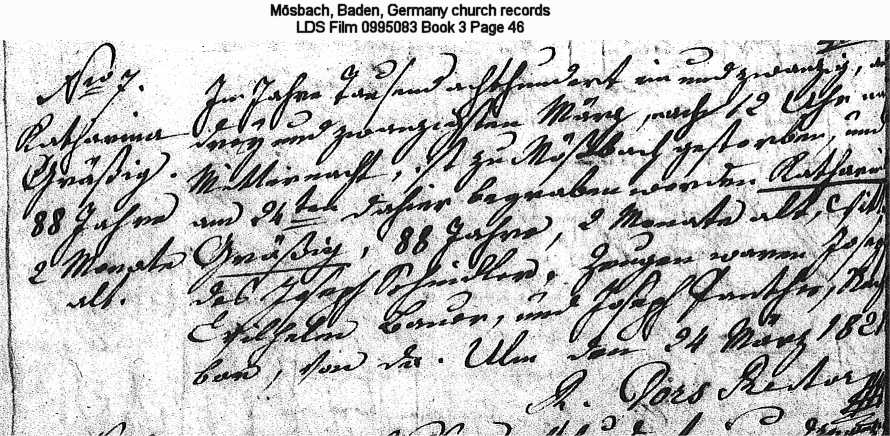 Mösbach, Baden, Germany church records
LDS Film 0995083 Book 3 Page 46
Nro 7.
Katharina
Gräßig.
88 Jahre
2 Monate
alt.
Im Jahre Tausend achthundert ein und zwanzig,
drey und zwanzigsten März, nachts 12 Uhr
Mitternacht, ist zu Mösbach gestorben, und
am 24ten dahier begraben worden Katharin
Gräßig, 88 Jahre, 2 Monate alt,
des Joseph Schindler. Zeugen waren Jose
Wilhelm Bauer, und Joseph Panther,
bon, von da. Ulm den 24 März 182
Rector